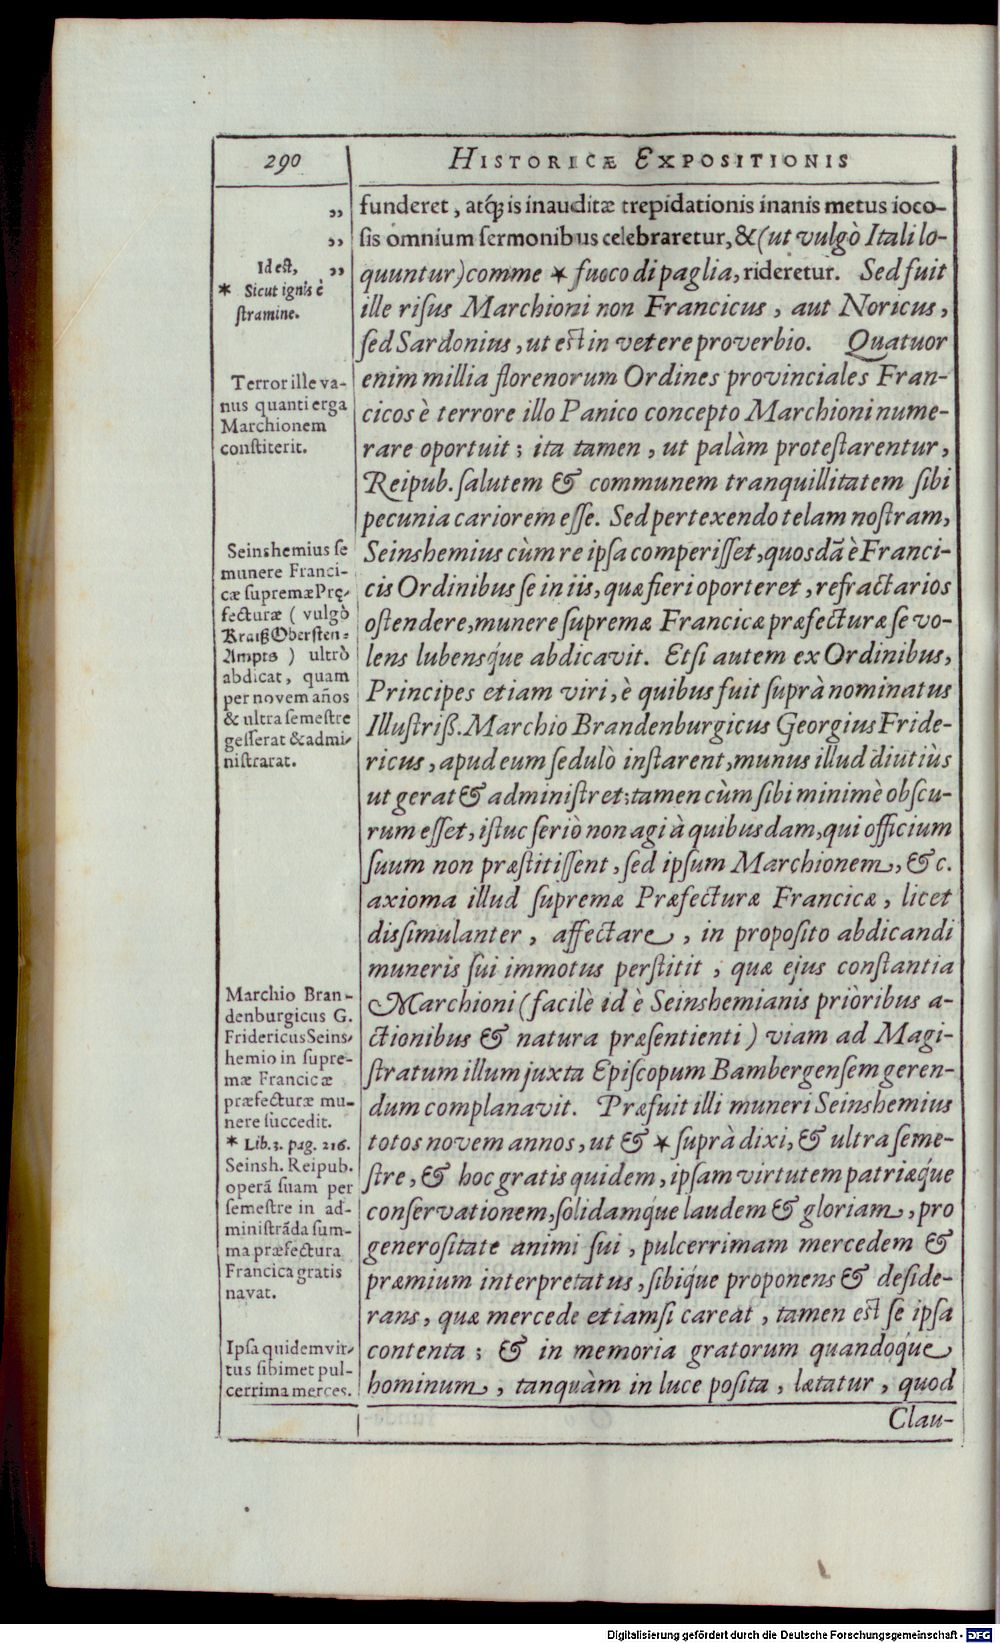 290
HISTORICÆ EXPOSITIONIS
„ funderet, atq́; is inauditæ trepidationis inanis metus ioco-
„ sis omnium sermonibus celebraretur, & (ut vulgò Itali lo-
„ quuntur) comme * fuoco di paglia, rideretur. Sed fuit
ille risus Marchioni non Francicus, aut Noricus,
sed Sardonius, ut est in vetere proverbio. Quatuor
enim millia florenorum Ordines provinciales Fran-
cicos è terrore illo Panico concepto Marchioni nume-
rare oportuit; ita tamen, ut palàm protestarentur,
Reipub. salutem & communem tranquillitatem sibi
pecunia cariorem esse. Sed pertexendo telam nostram,
Seinshemius cùm re ipsa comperisset, quosdã è Franci-
cis Ordinibus se in iis, quæ fieri oporteret, refractarios
ostendere, munere supremæ Francicæ præfecturæ se vo-
lens lubensq́ue abdicavit. Etsi autem ex Ordinibus,
Principes etiam viri, è quibus fuit suprà nominatus
Illustriß. Marchio Brandenburgicus Georgius Fride-
ricus, apud eum sedulò instarent, munus illud diutiùs
ut gerat & administret; tamen cùm sibi minimè obscu-
rum esset, istuc seriò non agi à quibusdam, qui officium
suum non præstitissent, sed ipsum Marchionem, &c.
axioma illud supremæ Præfecturæ Francicæ, licet
dissimulanter, affectare, in proposito abdicandi
muneris sui immotus perstitit, quæ ejus constantia
Marchioni (facilè id è Seinshemianis prioribus a-
ctionibus & natura præsentienti) viam ad Magi-
stratum illum juxta Episcopum Bambergensem geren-
dum complanavit. Præfuit illi muneri Seinshemius
totos novem annos, ut & * suprà dixi, & ultra seme-
stre, & hoc gratis quidem, ipsam virtutem patriæq́ue
conservationem, solidamq́ue laudem & gloriam, pro
generositate animi sui, pulcerrimam mercedem &
præmium interpretatus, sibiq́ue proponens & deside-
rans, quæ mercede etiamsi careat, tamen est se ipsa
contenta; & in memoria gratorum quandoq́ue
hominum, tanquàm in luce posita, lætatur, quod
Clau-
Id est,
* Sicut ignis è
stramine.
Terror ille va-
nus quanti erga
Marchionem
constiterit.
Seinshemius se
munere Franci-
cæ supremæ Prę-
fecturæ (vulgò
Kraiß Obersten-
Ampts) ultrò
abdicat, quam
per novem años
& ultra semestre
gesserat & admi-
nistrarat.
Marchio Bran-
denburgicus G.
Fridericus Seins-
hemio in supre-
mæ Francicæ
præfecturæ mu-
nere succedit.
* Lib. 3. pag. 216.
Seinsh. Reipub.
operã suam per
semestre in ad-
ministrãda sum-
ma præfectura
Francica gratis
navat.
Ipsa quidem vir-
tus sibimet pul-
cerrima merces.
Digitalisierung gefördert durch die Deutsche Forschungsgemeinschaft - DFG